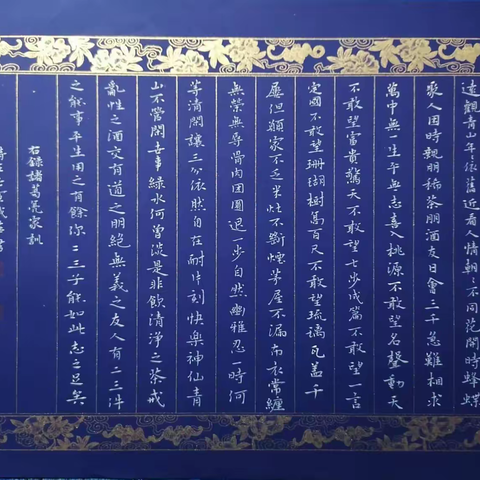 遠觀青山年年依舊近看人情朝朝不同花開時蜂蝶
聚人困時親朋稀茶朋酒友日會三千急難相求
萬中無一生平無志喜入桃源不敢望名聲動天
不敢望富貴驚天不敢望七步成篇不敢望一言
定國不敢望珊瑚樹萬百尺不敢望琉璃瓦蓋千
廈但願家不乏米灶不斷煙茅屋不漏布衣常纏
無榮無辱骨肉团圓退一步自然幽雅忍一時何
等清閑讓三分依然自在耐片刻快樂神仙青
山不管閑古事綠水何曾洗是非飲清淨之茶戒
亂性之酒交有道之朋絕無義之友人有二三件
之能事平生用之有餘你二三子能如此志之足矣
右錄諸葛亮家訓